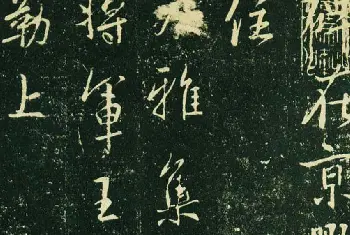 在京
住
大雅集
將軍王
勒上